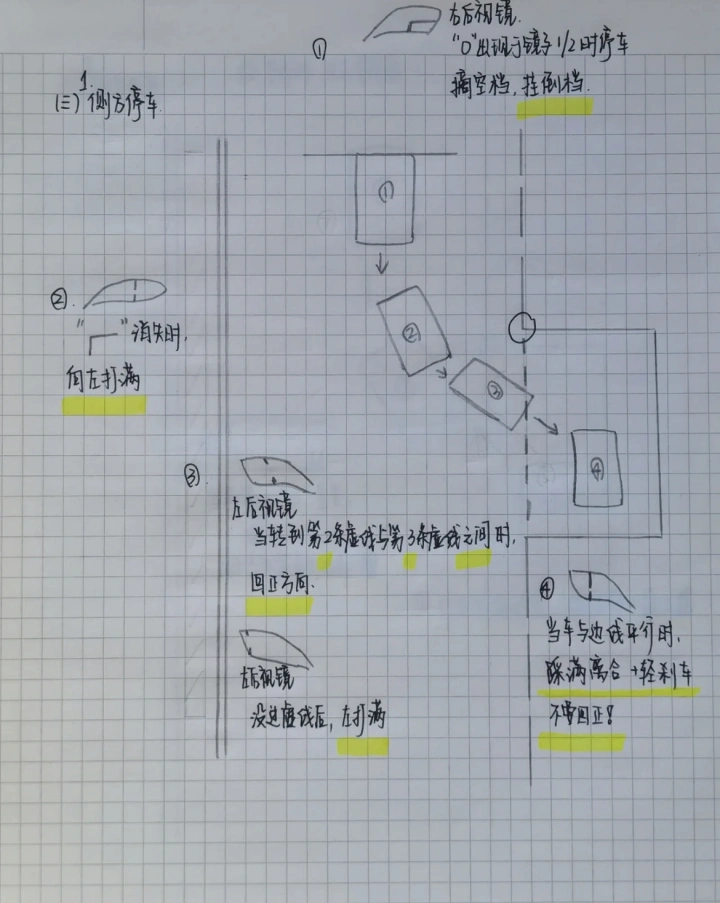 ①
右后视镜.
"0"出现于镜子1/2时停车
摘空档,挂倒档.
(三)
1.
侧方停车
①
②
③
④
②.
"┌─"消失时,
向左打满
③.
左后视镜
当转到第2条虚线与第3条虚线之间时,
回正方向.
左后视镜
没过虚线后,左打满
④
当车与边线平行时.
踩满离合+轻刹车
不需回正!